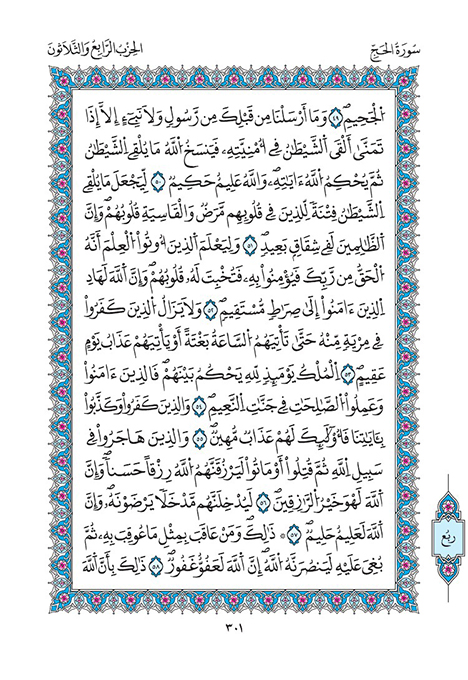 سُورَةُ الحَجّ
الحِزْبُ الرَّابِعُ وَالثَّلَاثُونَ
اَ۬لْجَحِيمِۖ ٤٩ وَمَا أَرْسَلْنَا مِن قَبْلِكَ مِن رَّسُولٖ وَلَا نَبِيٓءٍ اِلَّا إِذَا
تَمَنّ۪يٰٓ أَلْقَى اَ۬لشَّيْطَٰنُ فِےٓ أُمْنِيَّتِهِۦ فَيَنسَخُ اُ۬للَّهُ مَا يُلْقِے اِ۬لشَّيْطَٰنُ
ثُمَّ يُحْكِمُ اُ۬للَّهُ ءَايَٰتِهِۦۖ وَاللَّهُ عَلِيمٌ حَكِيمٞۖ ٥٠ لِّيَجْعَلَ مَا يُلْقِے
اِ۬لشَّيْطَٰنُ فِتْنَةٗ لِّلذِينَ فِے قُلُوبِهِم مَّرَضٞ وَالْقَاسِيَةِ قُلُوبُهُمْۖ وَإِنَّ
اَ۬لظَّٰلِمِينَ لَفِے شِقَاقِۢ بَعِيدٖۖ ٥١ وَلِيَعْلَمَ اَ۬لذِينَ أُوتُواْ اُ۬لْعِلْمَ أَنَّهُ
اُ۬لْحَقُّ مِن رَّبِّكَ فَيُؤْمِنُواْ بِهِۦ فَتُخْبِتَ لَهُۥ قُلُوبُهُمْۖ وَإِنَّ اَ۬للَّهَ لَهَادِ
اِ۬لذِينَ ءَامَنُوٓاْ إِلَىٰ صِرَٰطٖ مُّسْتَقِيمٖۖ ٥٢ وَلَا يَزَالُ اُ۬لذِينَ كَفَرُواْ
فِے مِرْيَةٖ مِّنْهُ حَتَّىٰ تَأْتِيَهُمُ اُ۬لسَّاعَةُ بَغْتَةً اَوْ يَأْتِيَهُمْ عَذَابُ يَوْمٍ
عَقِيمٍۖ ٥٣ اِ۬لْمُلْكُ يَوْمَئِذٖ لِّلهِ يَحْكُمُ بَيْنَهُمْۖ فَالذِينَ ءَامَنُواْ
وَعَمِلُواْ اُ۬لصَّٰلِحَٰتِ فِے جَنَّٰتِ اِ۬لنَّعِيمِۖ ٥٤ وَالذِينَ كَفَرُواْ وَكَذَّبُواْ
بِـَٔايَٰتِنَا فَأُوْلَٰٓئِكَ لَهُمْ عَذَابٞ مُّهِينٞۖ ٥٥ وَالذِينَ هَاجَرُواْ فِے
سَبِيلِ اِ۬للَّهِ ثُمَّ قُتِلُوٓاْ أَوْ مَاتُواْ لَيَرْزُقَنَّهُمُ اُ۬للَّهُ رِزْقاً حَسَناٗۖ وَإِنَّ
اَ۬للَّهَ لَهُوَ خَيْرُ اُ۬لرَّٰزِقِينَۖ ٥٦ لَيُدْخِلَنَّهُم مَّدْخَلٗا يَرْضَوْنَهُۥۖ وَإِنَّ
اَ۬للَّهَ لَعَلِيمٌ حَلِيمٞۖ ٥٧ ذَٰلِكَۖ وَمَنْ عَاقَبَ بِمِثْلِ مَا عُوقِبَ بِهِۦ ثُمَّ
بُغِيَ عَلَيْهِ لَيَنصُرَنَّهُ اُ۬للَّهُۖ إِنَّ اَ۬للَّهَ لَعَفُوٌّ غَفُورٞۖ ٥٨ ذَٰلِكَ بِأَنَّ اَ۬للَّهَ
ربع
٣٠١